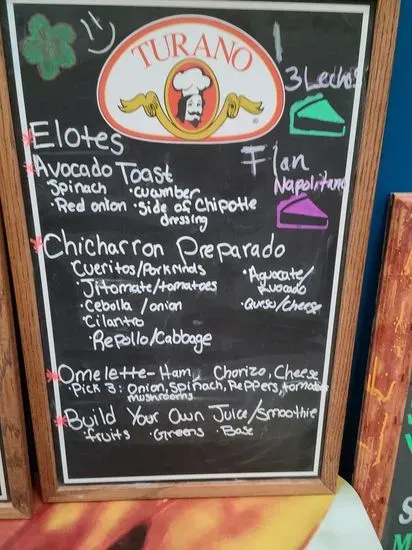 TURANO
®
3 Leches
Flan
Napolitano
Elotes
Avocado Toast
Spinach · cucumber
· Red onion · Side of Chipotle
dressing
Chicharron Preparado
Cueritos/Porkrinds
· Jitomate/tomatoes
· Cebolla/onion
· Cilantro
· Repollo/Cabbage
· Aguacate/
Avocado
· Queso/Cheese
Omelette- Ham, Chorizo, Cheese
· Pick 3: Onion, Spinach, Peppers, tomatoes
mushrooms
Build Your Own Juice/Smoothie
· fruits · Greens · Base